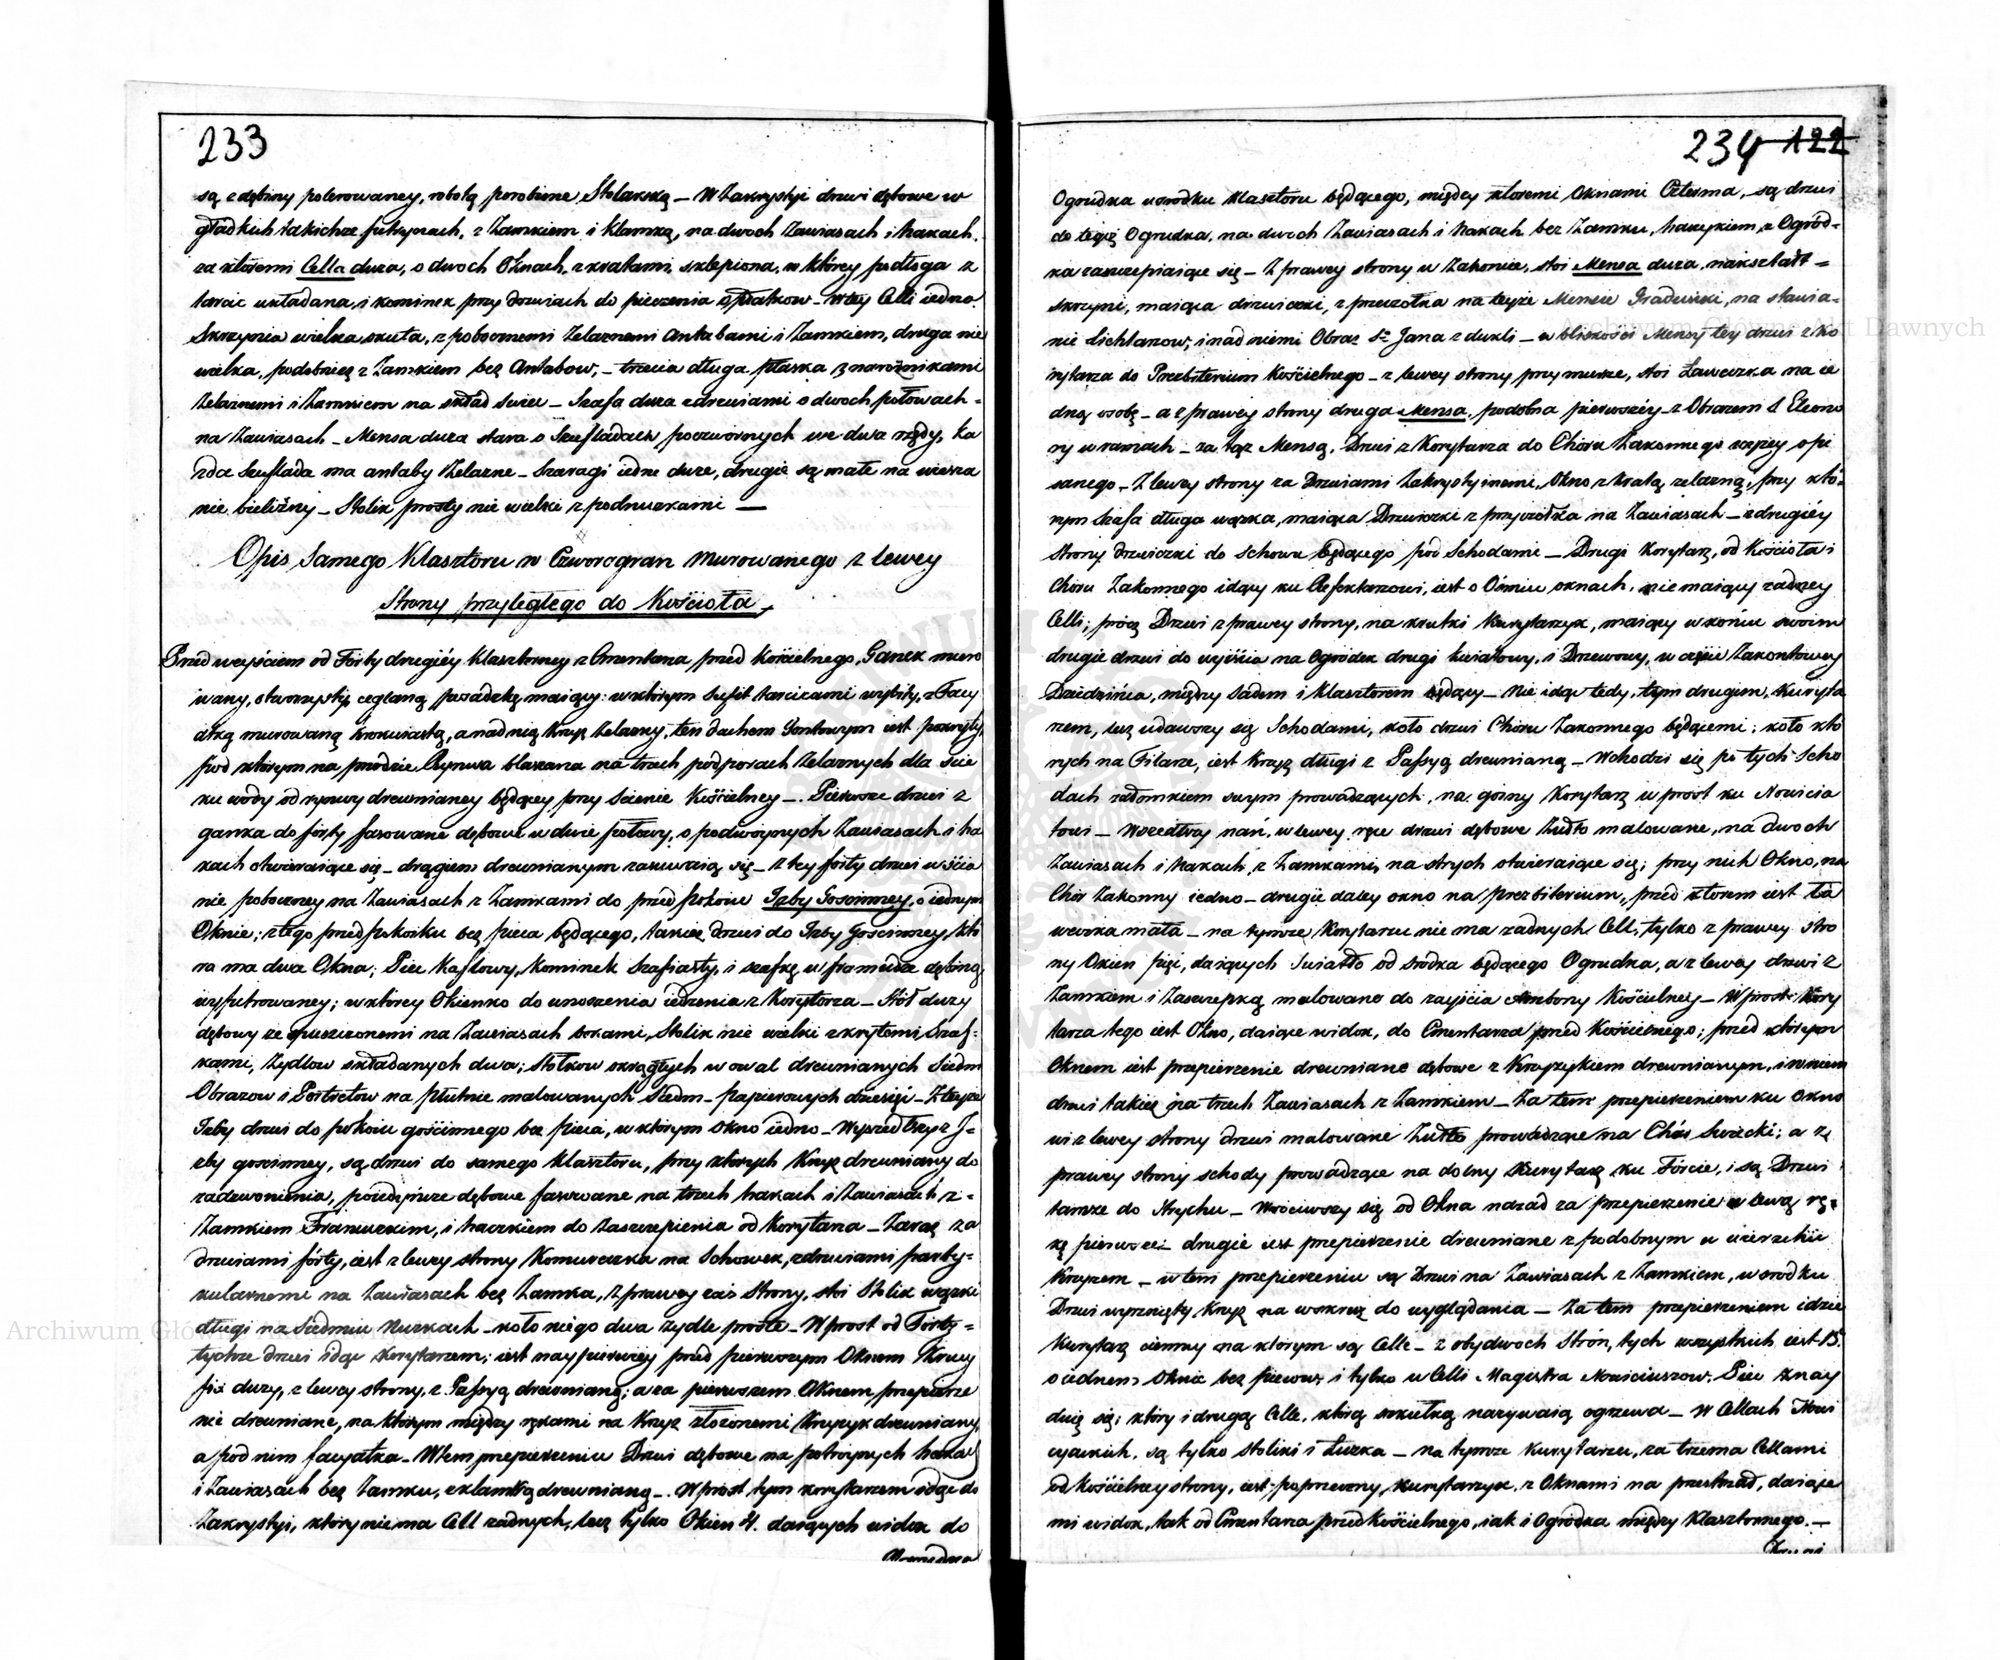 233
są z dębiny polerowaney, robotą porobione Stolarską _ W Zakrystyi drzwi dębowe w
gładkich takichże futrynach, z Zamkiem i Klamką, na dwoch Zawiasach i hakach.
za ktoremi Cella duża, o dwoch Oknach, z kratami, sklepiona, w którey podłoga z
tarcic układana, i kominek przy drzwiach do pieczenia opłatkow _ w tey Celli iedna
Skrzynia wielka okuta, z pobocznemi Żelaznemi Antabami i Zamkiem, druga nie
wielka, podobnież z Zamkiem bez Antabow, _ trzecia długa płaska z narożnikami
Żelaznemi i Zamkiem na skład świec _ Szafa duża z drzwiami o dwoch połowach =
na Zawiasach _ Mensa duża stara o Szufladach poczwornych we dwa rzędy, ka
żda Szuflada ma antaby Żelazne _ Szaragi iedne duże, drugie są małe na wiesza
nie bielizny _ Stolik prosty nie wielki z podnużkami _
Opis Samego Klasztoru w Czworogran Murowanego z lewey
Strony przyległego do Kościoła.
Przed weyściem od Forty drugiéy Klasztorney z Cmentarza przed Kościelnego, Ganek muro
wany, otworzysty, ceglaną posadzkę maiący: w którym Sufit tarcicami wybity, z Facy
atką murowaną krokwiastą, a nad nią Krzyż żelazny, ten dachem Gontowym iest pokryty,
pod którym na przodzie Rynwa blaszana na trzech podporach Żelaznych dla ście
ku wody od rynwy drewnianey będącey przy Ścienie Kościelney _. Pierwsze drzwi z
ganka do forty fasowane dębowe w dwie połowy, o podwóynych Zawiasach i ha
kach otwieraiące się _ drągiem drewnianym zasuwaią się _ z tey forty drzwi w ścia
nie poboczney na Zawiasach z Zamkami do przed pokoiu Izby Gościnney, o iednym
Oknie; z tego przedpokoiku bez pieca będącego, takież drzwi do Izby Gościnney, któ
ra ma dwa Okna; Piec Kaflowy, Kominek Szafiasty, i szafkę w framudze dębiną
wyfutrowaney; w którey Okienko do wnoszenia iedzenia z Korytarza _ Stół duży
dębowy ze spuszczonemi na Zawiasach bokami, Stolik nie wielki z krytemi Szaf=
kami, Zydlow składanych dwa; Stołkow okrągłych w owal drewnianych Siedm
Obrazow i Portretów na płutnie malowanych Siedm _ papierowych dziesięć _ Z teyże
Izby drzwi do pokoiu gościnnego bez pieca, w którym okno iedno _ Wyszedłszy z I=
zby gościnney, są drzwi do samego Klasztoru, przy których Krzyż drewniany do
zadzwonienia, poiedyńcze dębowe fasowane na trzech hakach i Zawiasach z =
Zamkiem Francuzkim, i haczkiem do Zaszczepienia od Korytarza _ Zaraz za
drzwiami forty, iest z lewey strony Komureczka na Schowek, z drzwiami party=
kularnemi na Zawiasach bez Zamka, z prawey zaś Strony, stoi Stolik wązki
długi na Siedmiu Nużkach _ koło niego dwa zydle proste _ W prost od Forty =
tychże drzwi idąc Korytarzem; iest naypierwey przed pierwszym Oknem Krucy
fix duży, z lewey strony, z Passyą drewnianą; a za pierwszem Oknem przepierze
nie drewniane, na którym między rękami na Krzyż złożonemi Krzyżyk drewniany,
a pod nim facyatka _ W tem przepierzeniu Drzwi dębowe na potróynych hakach
i Zawiasach bez Zamku, z klamką drewnianą _. W prost tym korytarzem idąc do
Zakrystyi, który nie ma Cell żadnych, lecz tylko Okien 4. daiących widok do
234 122
Ogrudka w środku Klasztoru będącego, między ktoremi Oknami Czterma, są drzwi
do tegoż Ogrudka, na dwoch Zawiasach i hakach bez Zamku, haczykiem z Ogród=
ka zaszczepiaiące się _ Z prawey strony w Załomie, stoi Mensa duża, nakształt =
Skrzyni, maiąca drzwiczki, z przezołka na teyże Mensie Graduski, na stawia=
nie Lichtarzow, i nad niemi Obraz St. Jana z dukli _ w bliskości Mensy tey drzwi z Ko
rytarza do Prezbiterium Kościelnego _ z lewey strony przy murze, stoi Ławeczka na ie
dną osobę _ a z prawey strony druga Mensa, podobna pierwszéy _ z Obrazem S. Eleono
ry w ramach _ za tąż Mensą, Drzwi z Korytarza do Choru Zakonnego wyżey opi
sanego _ Z lewey strony za Drzwiami Zakrystyinemi, Okno z kratą żelazną, przy któ=
rym Szafa długa wązka, maiąca Drzwiczki z przyczołka na Zawiasach _ z drugiéy
strony drzwiczki do schowu będącego pod Schodami _ Drugi Korytarz, od Kościoła i
Choru Zakonnego idący ku Refektarzowi, iest o Ośmiu oknach, nie maiący żadney
Celli; prócz Drzwi z prawey strony, na krutki Kurytarzyk, maiący w końcu swoim
drugie drzwi do wyiścia na Ogródek drugi kwiatowy, i Drzewowy, w części Zakontowey
Dziedzińca, między Sadem i Klasztorem będący _ Nie idąc tedy, tym drugim, Kuryta
rzem, lecz udawszy się Schodami, koło drzwi Choru Zakonnego będącemi; koło któ
rych na Filarze, iest Krzyż długi z Passyą drewnianą _ Wchodzi się po tych Scho
dach załomkiem swym prowadzących, na górny Korytarz w prost ku Nowicia
towi _ Wszedłszy nań, w lewey ręce drzwi dębowe Żułto malowane, na dwoch
Zawiasach i Hakach, z Zamkami, na strych otwieraiące się; przy nich Okno, na
Chór Zakonny iedno _ drugie daley okno na prezbiterium, przed ktorem iest ła
weczka mała _ na tymże Korytarzu nie ma żadnych Cell, tylko z prawey stro
ny Okien pięć, daiących Światło od środka będącego Ogrudka, a z lewey drzwi z
Zamkiem i Zaszczepką malowane do zayścia Ambony Kościelney _ W prost Kory
tarza tego iest Okno, daiące widok, do Cmentarza przed Kościelnego; przed którym
Oknem iest przepierzenie drewniane dębowe z Krzyżykiem drewnianym, i w niem
drzwi takież na trzech Zawiasach z Zamkiem _ Za tem przepierzeniem ku Okno
wi z lewey strony drzwi malowane Żułto prowadzące na Chór Swiecki; a z
prawey strony schody prowadzące na dolny Kurytarz ku Fórcie, i są Drzwi
tamże do Strychu _ Wróciwszy się od Okna nazad za przepierzenie w lewą rę=
kę pierwsze: drugie iest przepierzenie drewniane z podobnym u wierzchu
Krzyżem _ w tem przepierzeniu są Drzwi na Zawiasach z Zamkiem, w środku
Drzwi wyrznięty krzyż na wskroś do wyglądania _ Za tem przepierzeniem idzie
Kurytarz ciemny na którym są Celle _ z obydwoch Strón, tych wszystkich iest 15.
o iednem Oknie bez piecow, i tylko w Celli Magistra Nowiciuszow, Piec znay
duie się; który i drugą Celle, którą szkułką nazywaią ogrzewa _ W Cellach Nowi
cyackich, są tylko stoliki i Łuzka _ na tymże Kurytarzu, za trzema Cellami
od Kościelney strony, iest poprzeczny, kurytarzyk, z Oknami na przestrzał, daiące
mi widok, tak od Cmentarza przed Kościelnego, iak i Ogródka między Klasztornego. _
Archiwum Główne Akt Dawnych